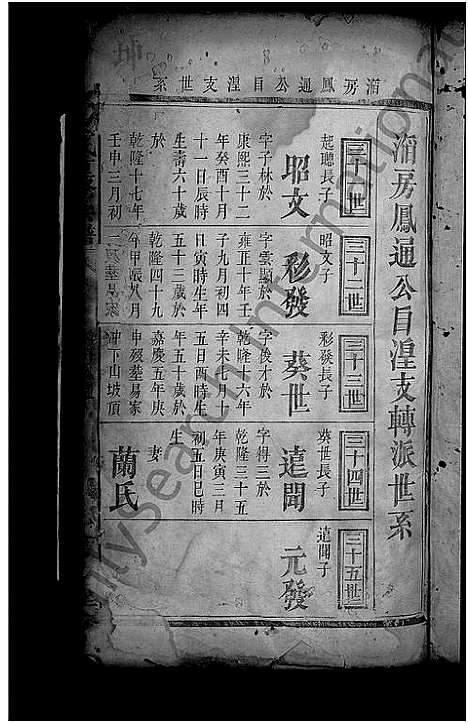 淯房鳳通公目湼支轉派世系
淯房鳳通公目湼支世系
三十一世
起聽長子
昭文
字子林於
康熙三十二
年癸酉十月
十一日辰時
生壽六十歲
於
乾隆十七年
壬申三月初
三十二世
昭文子
彩發
字雲顯於
雍正十年壬
子九月初四
日寅時生年
五十三歲於
乾隆四十九
年甲辰八月
三十三世
彩發長子
葵世
字俊才於
乾隆十六年
辛未七月十
五日酉時生
年五十歲於
嘉慶五年庚
申歿塟易家
冲下山坡頂
三十四世
葵世長子
遠聞
字得三於
乾隆三十五
年庚寅三月
初五日巳時
生
妻
蘭氏
三十五世
遠聞子
元發
FamilySearch International